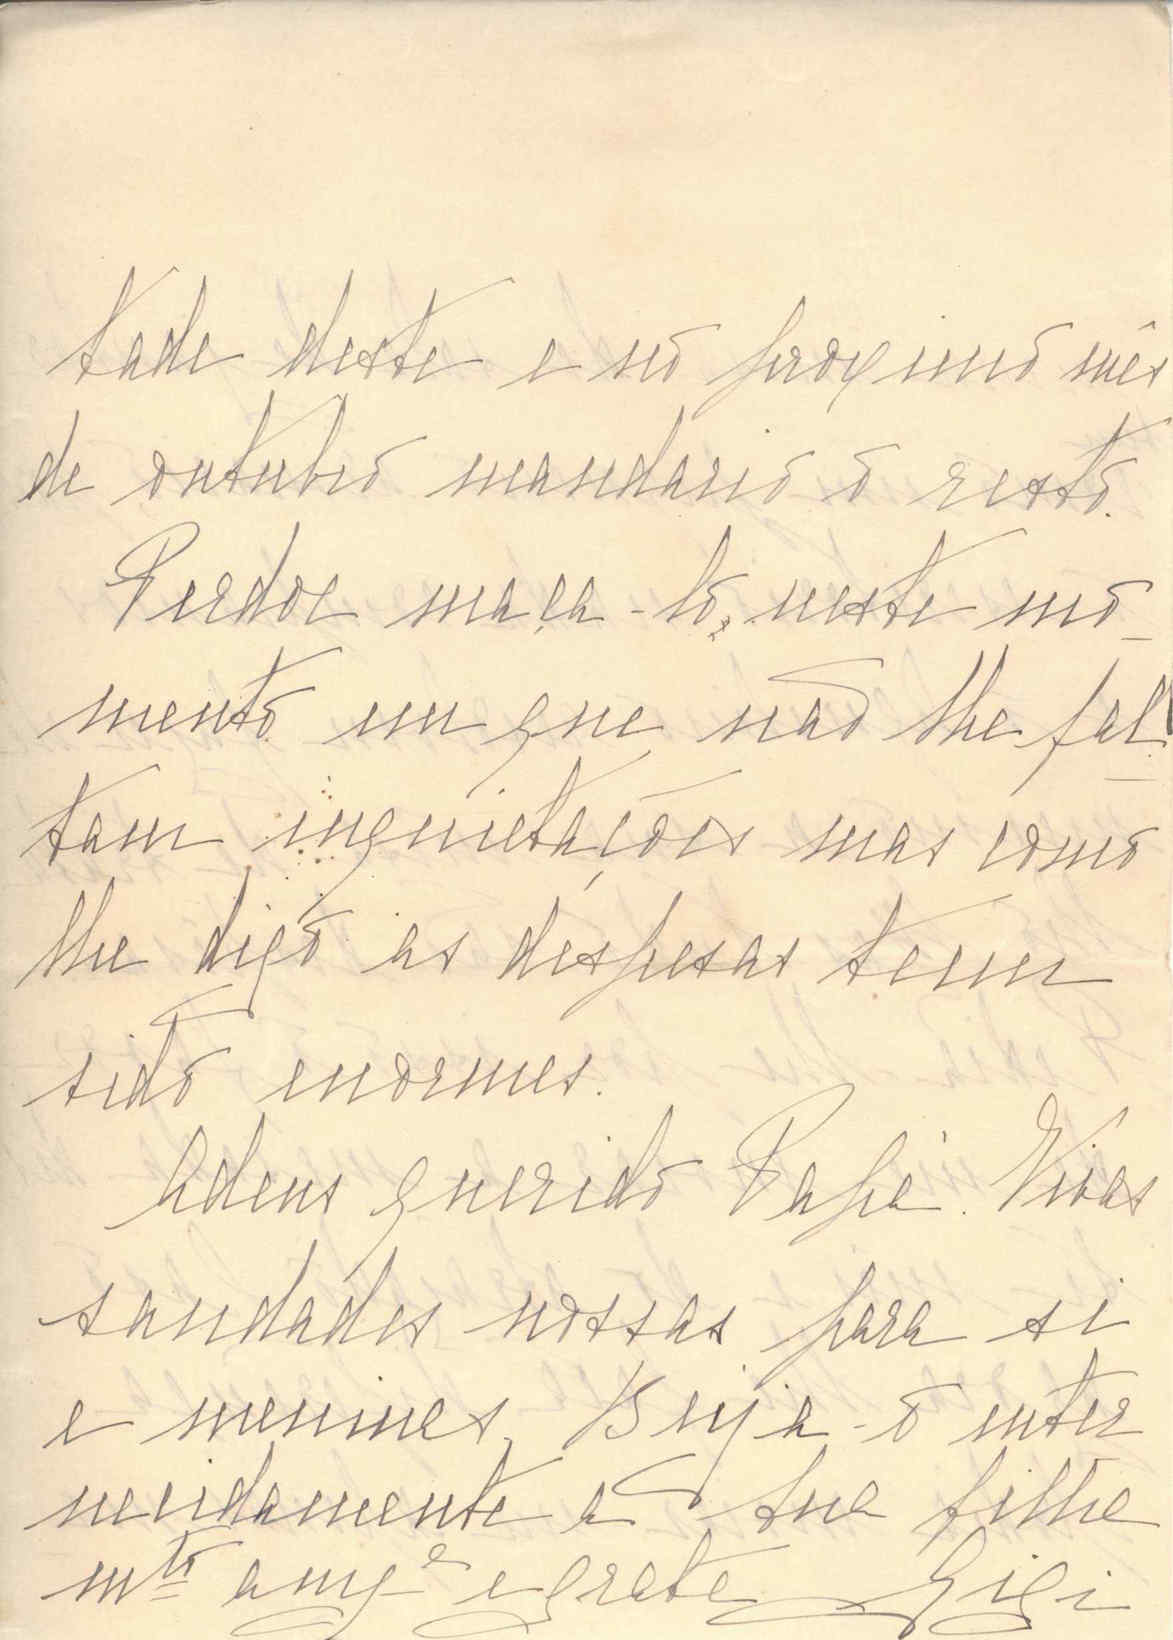 tade deste e no proximo mês
de outubro mandarió o resto.
Perdoe maça-lo, neste mo-
mento em que não lhe fal-
tam inquietações mas como
lhe digo as despesas teem
sido enormes.
Adeus querido Papá. Vivas
saudades nossas para si
e meninas. Beija-o enter
necidamente a sua filha
mto amga e grata Gigi